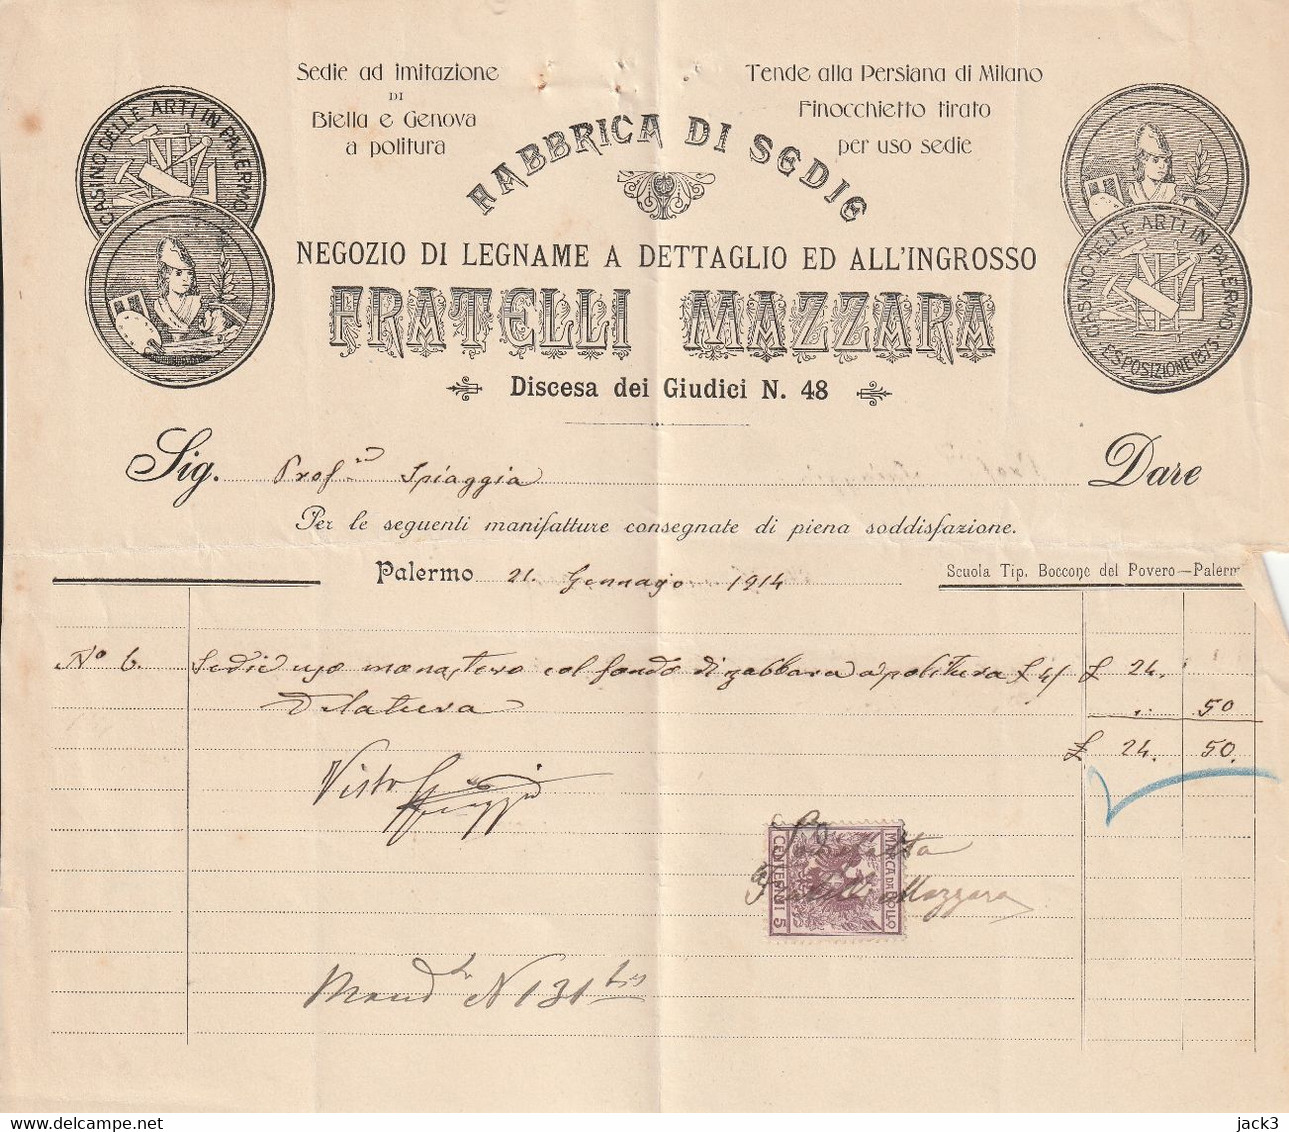 Sedie ad imitazione
DI
Biella e Genova
a politura
Tende alla Persiana di Milano
Finocchietto tirato
per uso sedie
CASINO DELLE ARTI IN PALERMO
FABBRICA DI SEDIE
NEGOZIO DI LEGNAME A DETTAGLIO ED ALL'INGROSSO
FRATELLI MAZZARA
CASINO DELLE ARTI IN PALERMO
ESPOSIZIONE 1875
Discesa dei Giudici N. 48
Sig. Prof. Spiaggia Dare
Per le seguenti manifatture consegnate di piena soddisfazione.
Palermo 21 Gennajo 1914
Scuola Tip. Boccone del Povero—Palerm
No 6. Sedie uso monastero col fondo di zabbara a politura £ 4/ £ 24.
Dilatura 50
£ 24. 50.
Visto Spiaggia
MARCA DA BOLLO
CENTESIMI 5
Fratelli Mazzara
Mand to N 131 bis
delcampe.net
jack3